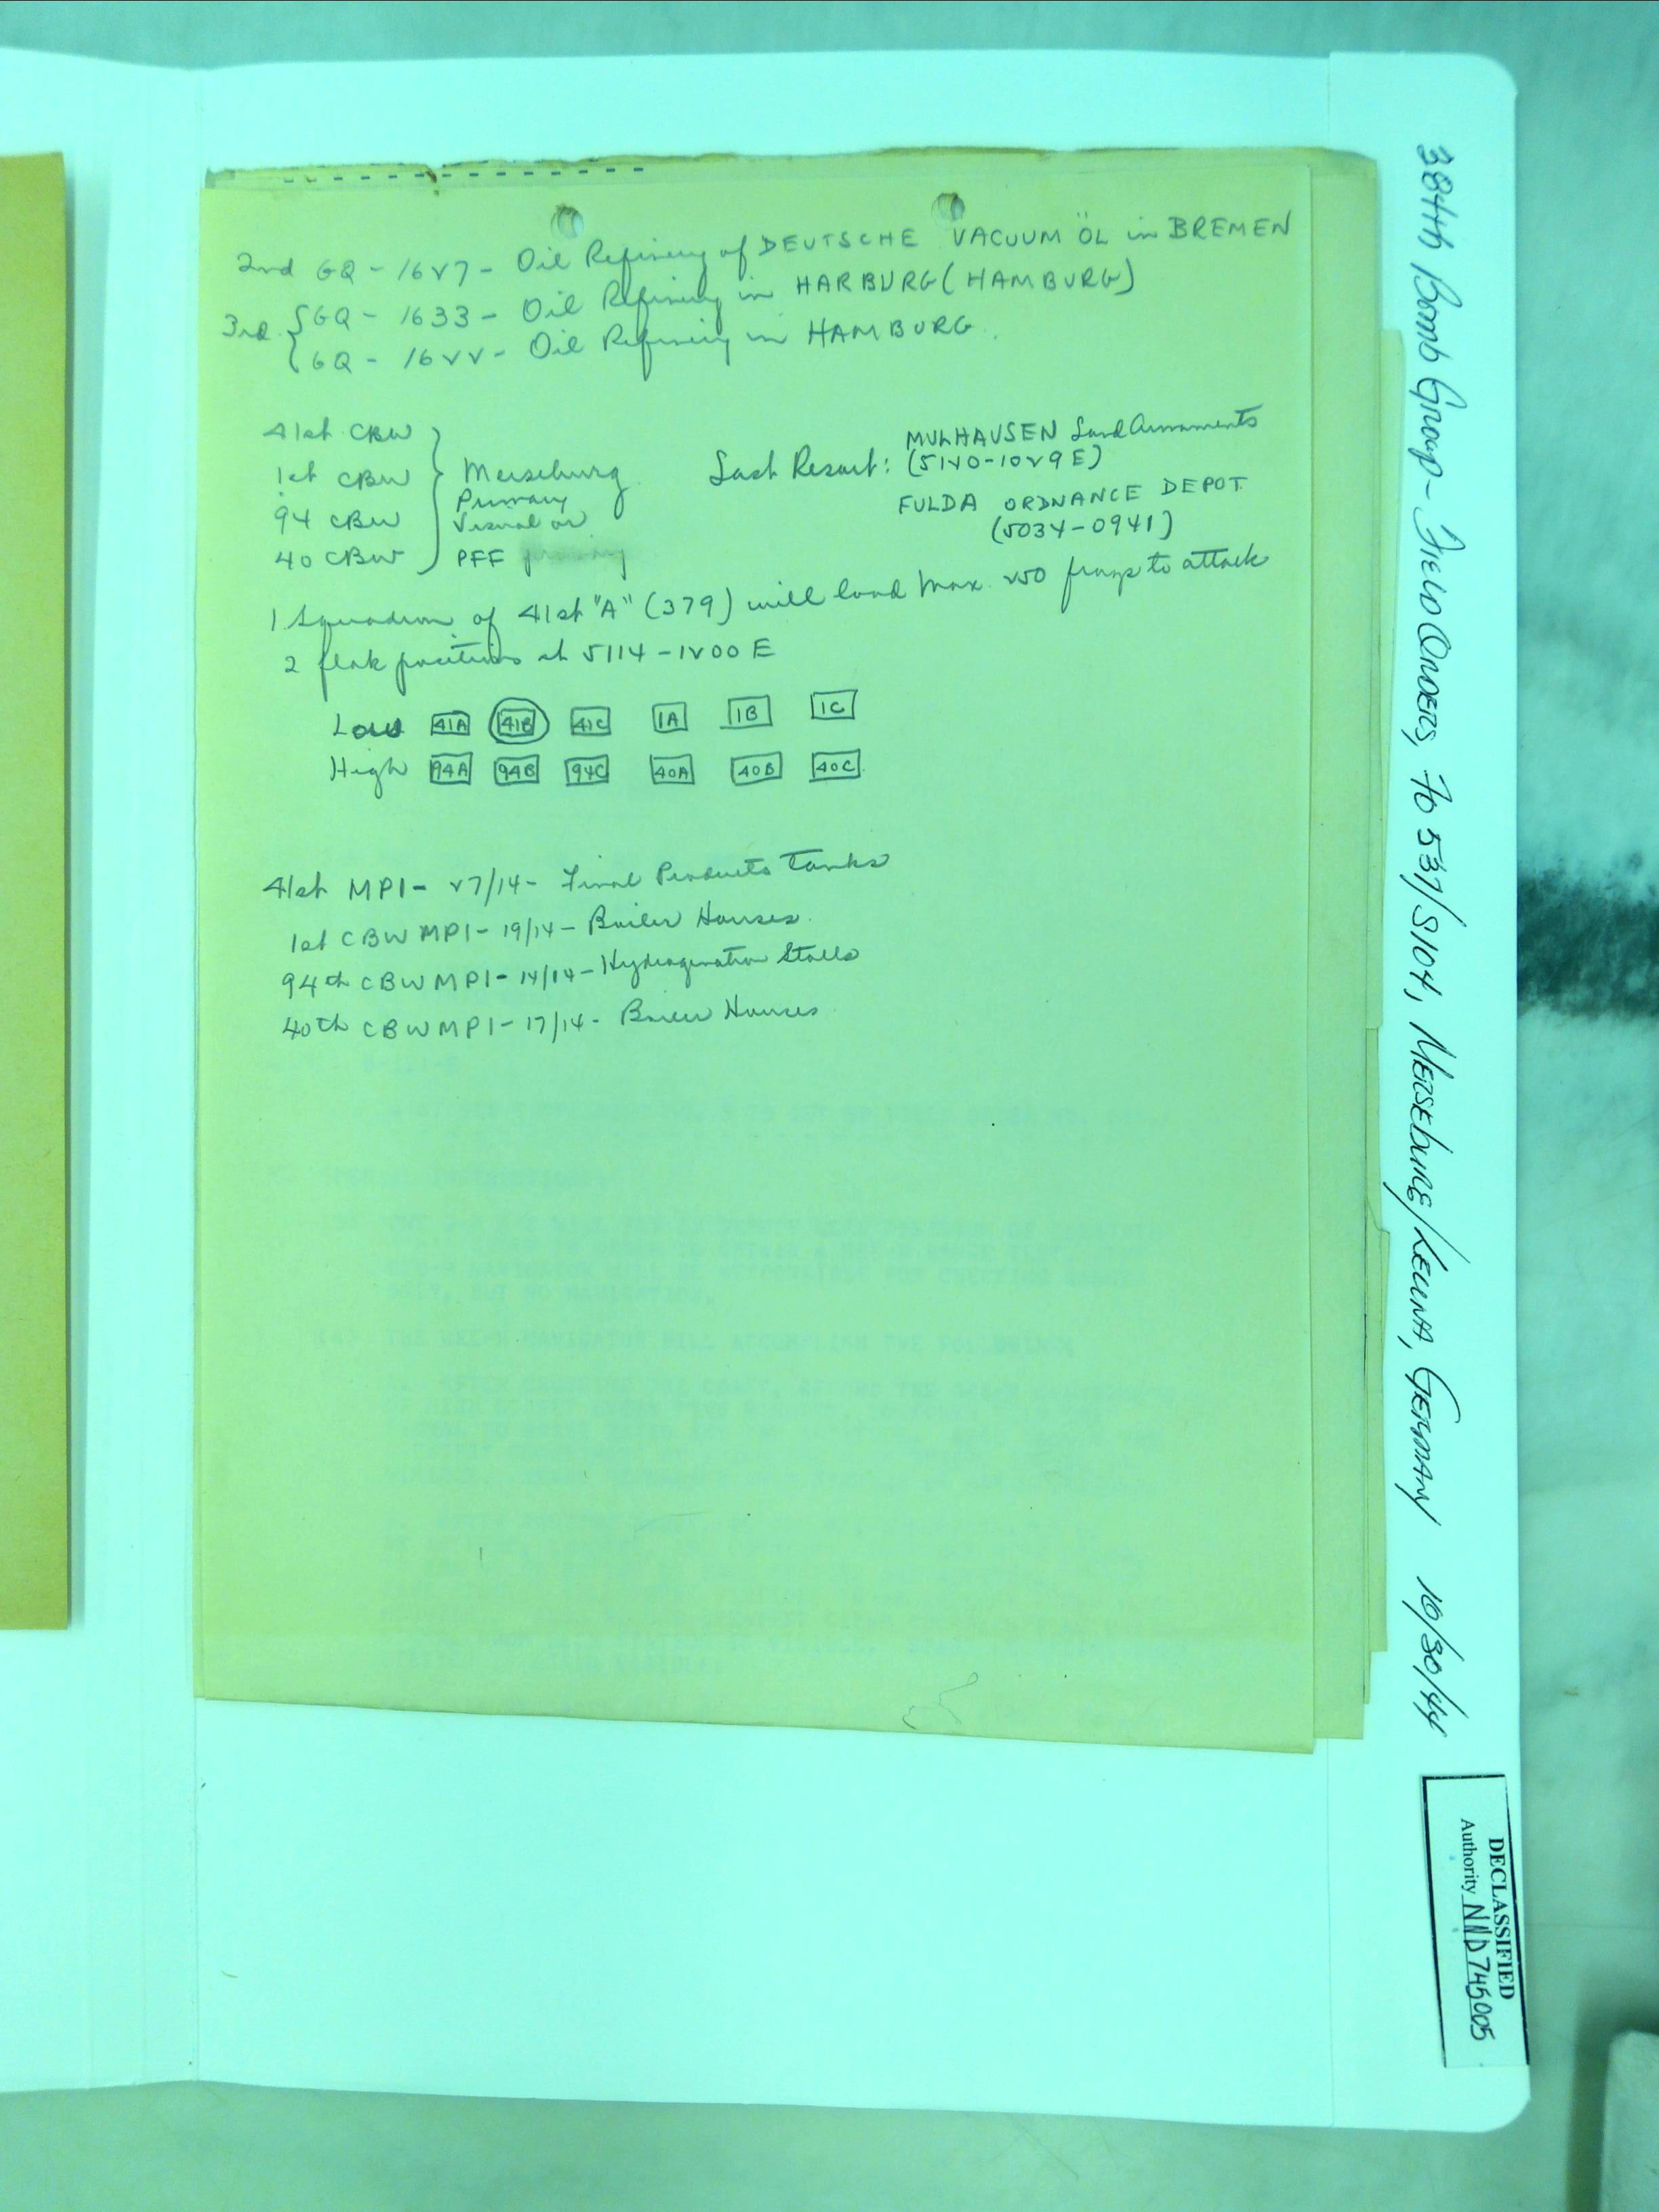 2nd GQ - 1627 - Oil Refinery of DEUTSCHE VACUUM ÖL in BREMEN
3rd { GQ - 1633 - Oil Refinery in HARBURG (HAMBURG)
GQ - 1622 - Oil Refinery in HAMBURG.
41st CBW
1st CBW
94 CBW
40 CBW
Merseburg
Primary
Visual or
PFF
Last Resort: MULHAUSEN Land Armaments
(5120-1029E)
FULDA ORDNANCE DEPOT
(5034-0941)
1 Squadron of 41st "A" (379) will load max. 250 frags to attack
2 flak positions at 5114-1200E
Low 41A 41B 41C 1A 1B 1C
High 94A 94B 94C 40A 40B 40C
41st MPI - 27/14 - Final Products Tanks
1st CBW MPI - 19/14 - Boiler Houses.
94th CBW MPI - 14/14 - Hydrogenation Stalls
40th CBW MPI - 17/14 - Boiler Houses
384th Bomb Group - Field Orders, Fo 537/S104, Merseburg/Leuna, Germany 10/30/44
DECLASSIFIED
Authority NND 745005